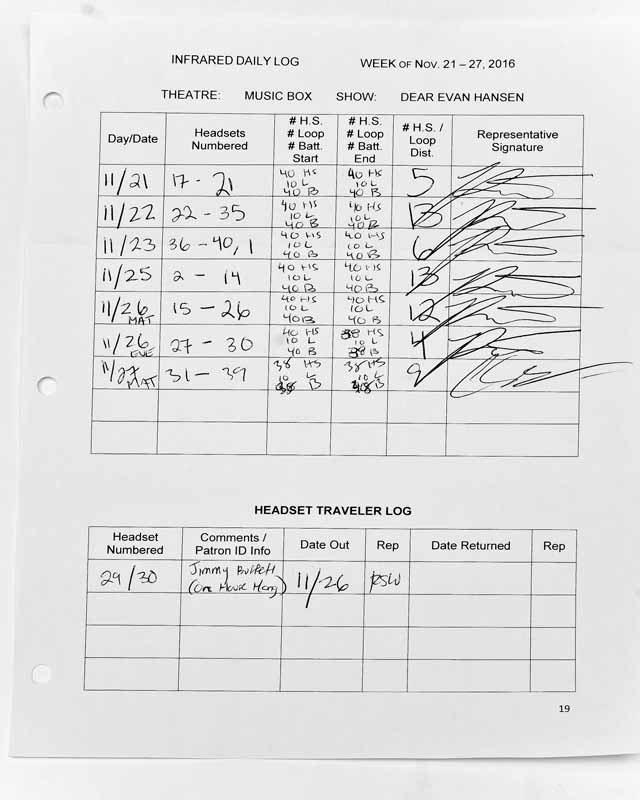 INFRARED DAILY LOG WEEK OF NOV. 21 – 27, 2016
THEATRE: MUSIC BOX SHOW: DEAR EVAN HANSEN
Day/Date Headsets Numbered # H.S. # Loop # Batt. Start # H.S. # Loop # Batt. End # H.S. / Loop Dist. Representative Signature
11/21 17 - 21 40 HS 10 L 40 B 40 HS 10 L 40 B 5
11/22 22 - 35 40 HS 10 L 40 B 40 HS 10 L 40 B 13
11/23 36 - 40, 1 40 HS 10 L 40 B 40 HS 10 L 40 B 6
11/25 2 - 14 40 HS 10 L 40 B 40 HS 10 L 40 B 13
11/26 MAT 15 - 26 40 HS 10 L 40 B 40 HS 10 L 40 B 12
11/26 EVE 27 - 30 40 HS 10 L 40 B 38 HS 10 L 38 B 4
11/27 MAT 31 - 39 38 HS 10 L 38 B 38 HS 10 L B 9
HEADSET TRAVELER LOG
Headset Numbered Comments / Patron ID Info Date Out Rep Date Returned Rep
29/30 Jimmy 11/26 RSW
(One
19